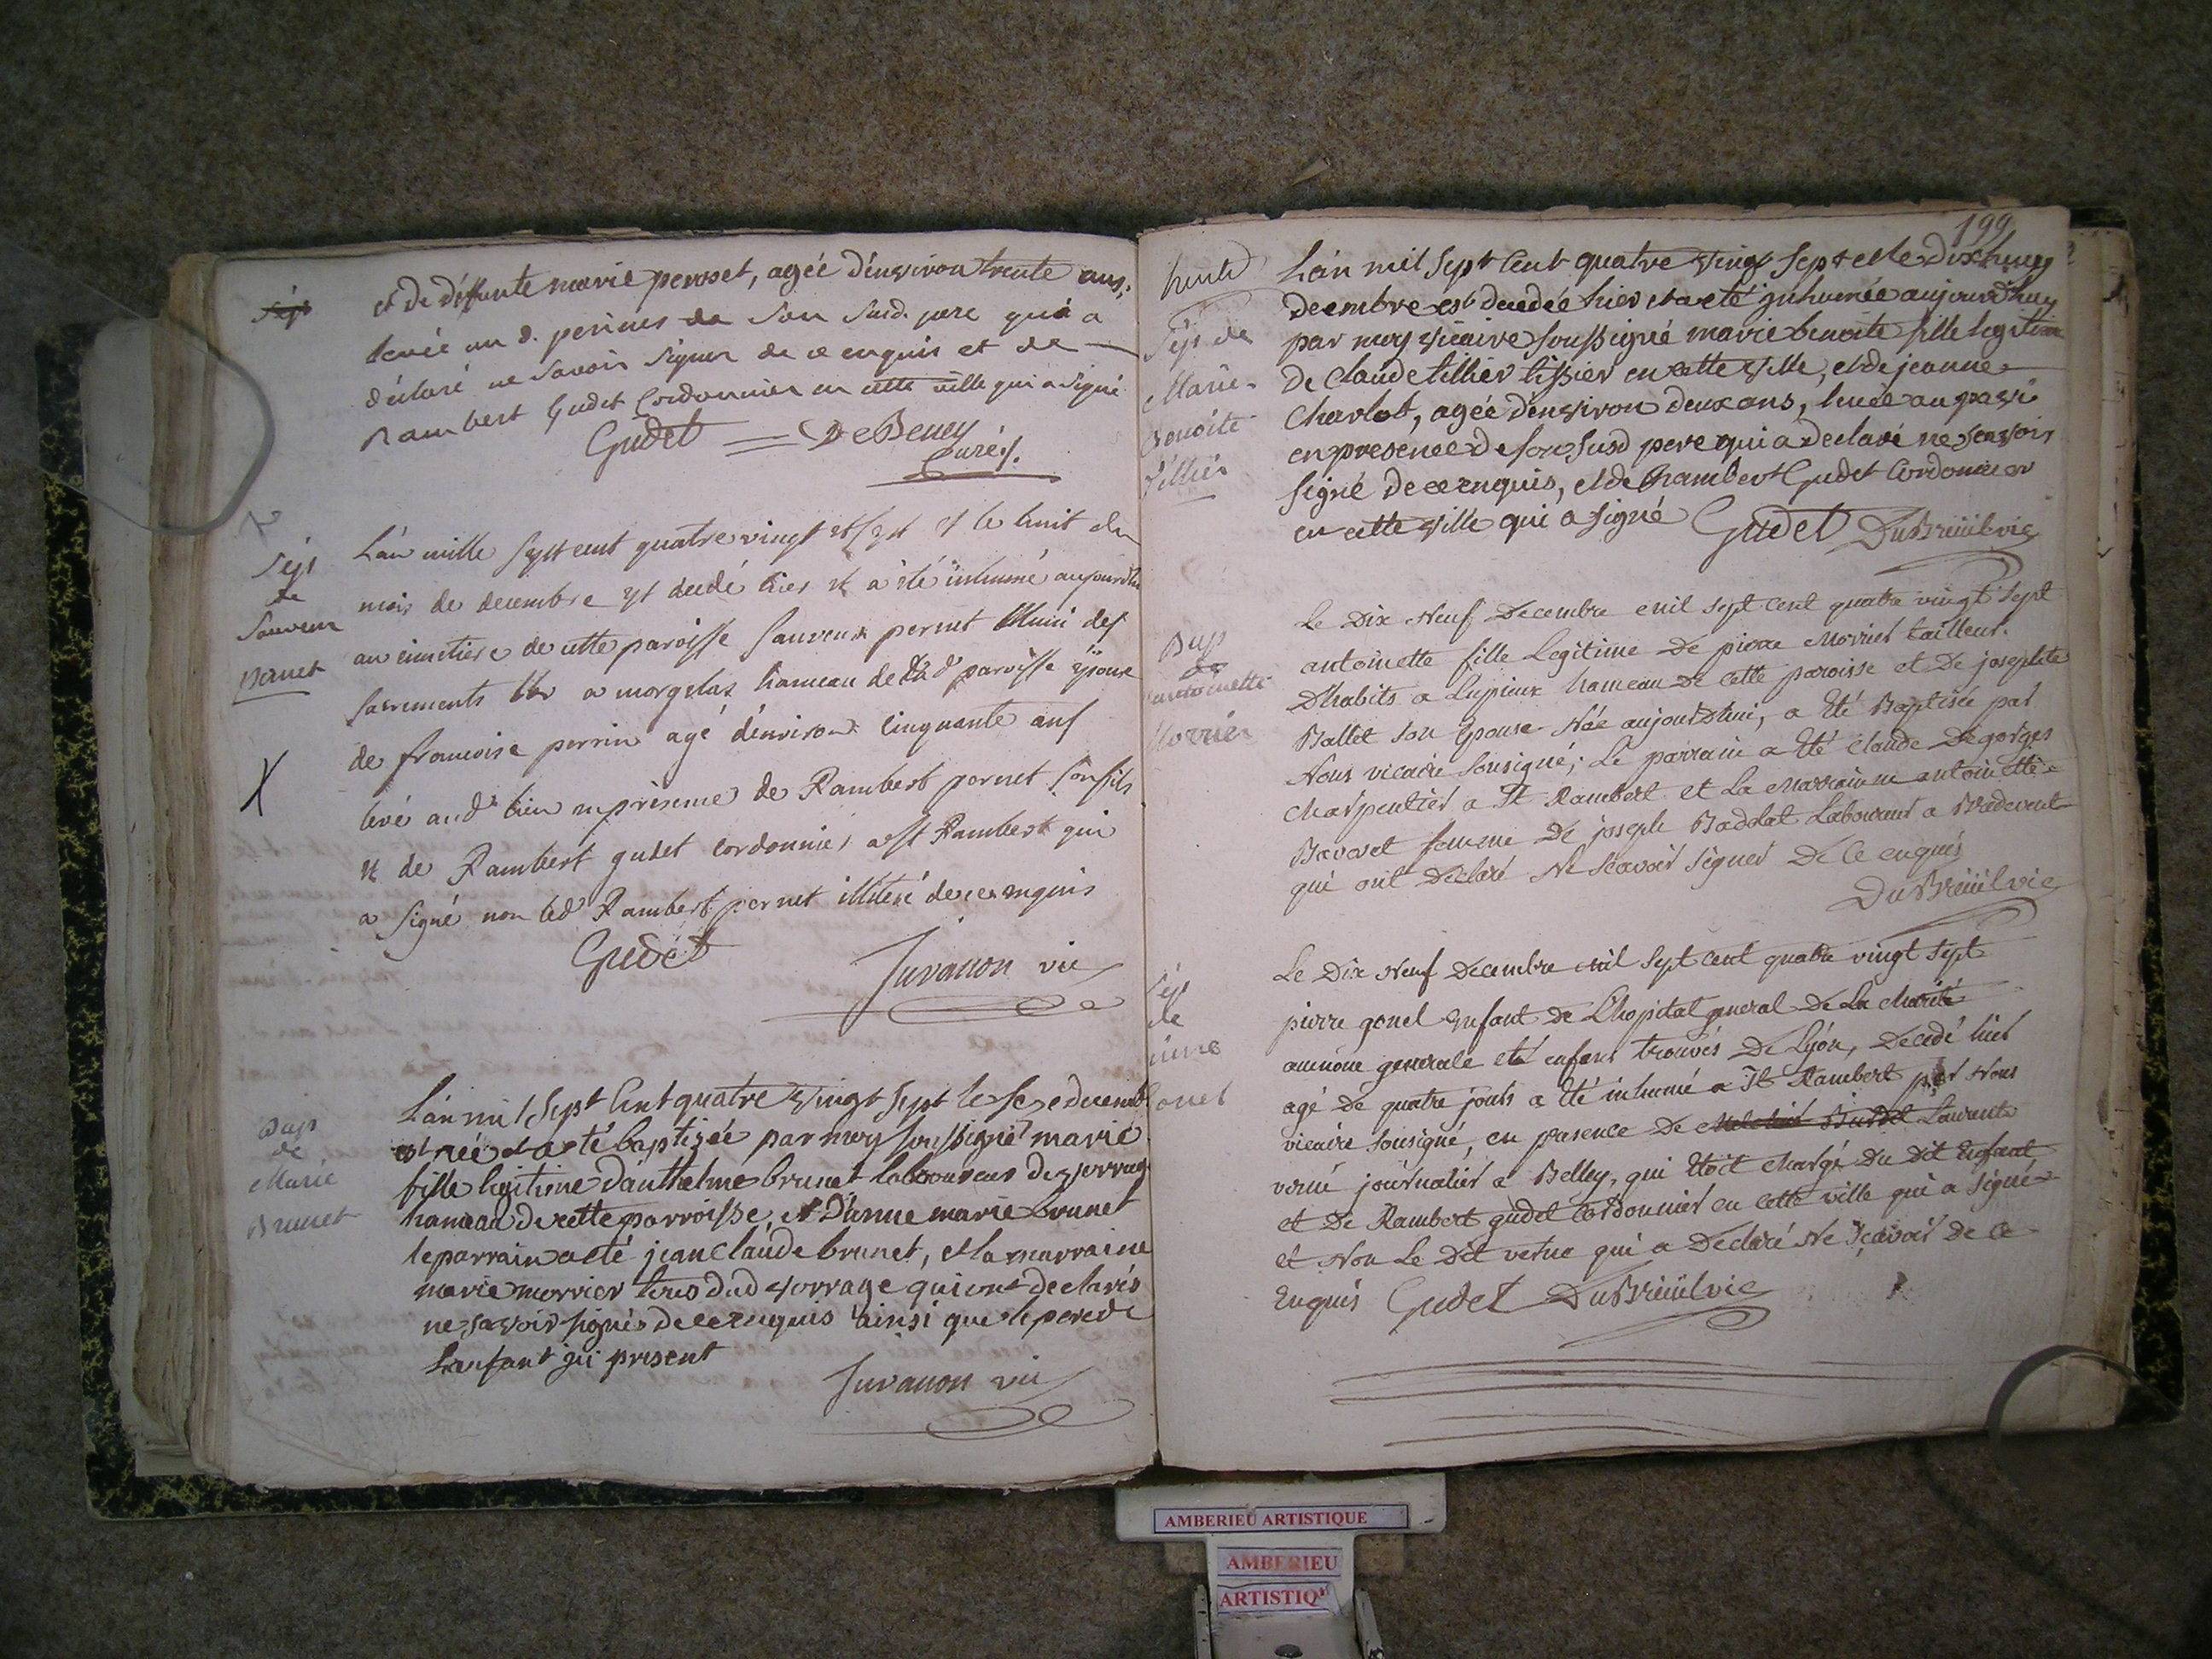 et de deffunte marie peroset, agée denviron trente ans,
levée au d. perines de son susd. pere qui a
déclaré ne savoir signer de ce enquis et de
Rambert Gudet Cordonnier en cette ville qui a signé
Gudet = DeBeney
Curé
Sép
de
Sauveur
pernet
L'an mille sept cent quatre vingt et sept et le huit du
mois de decembre est decedé hier et a été inhumé aujourdhui
au cimetiere de cette paroisse sauveur pernet muni des
sacrements a morgelas hameau de lad. paroisse époux
de francoise perrin agé d'environ cinquante ans
levé aud. lieu en présence de Rambert pernet son fils
et de Rambert gudet cordonnier a st Rambert qui
a signé non led. Rambert pernet illiteré de ce enquis
Gudet
Juvanon vic
X
Bap
de
Marie
Brunet
L'an mil sept cent quatre vingt sept le seze decemb
est née et a eté baptizée par moy soussigné marie
fille legitime d'anthelme brunet laboureur de vorrage
hameau de cette parroisse, et D'anne marie brunet
le parrain a eté jean claude brunet, et la marraine
marie morrier tous dud vorrage qui ont declarés
ne savoir signés de ce enquis ainsi que le pere de
l'enfant ici present
Juvanon vic
199
Sép de
Marie
Benoite
Tillier
L'an mil sept cent quatre vingt sept et le dix huit
decembre est decedée hier et a eté inhumée aujourdhuy
par moy vicaire soussigné marie benoite fille legitime
de claude tillier tissier en cette ville, et de jeanne
Charlot, agée d'environ deux ans, levée au pavi
en presence de son susd pere qui a declaré ne savoir
signé de ce enquis, et de Rambert Gudet Cordonnier
en cette ville qui a signé Gudet DuBreüil vic
Bap
de
antoinette
Morrier
Le Dix Neuf Decembre mil sept cent quatre vingt sept
antoinette fille Legitime De pierre Morrier tailleur
D'habits a Lupieux hameau De cette paroisse et De josephte
Ballet son Epouse Née aujourd'hui, a Eté Baptisée par
Nous vicaire sousigné; Le parrain a Eté Claude Degorges
Charpentier a St Rambert et La Marraine antoinette
Bavoret femme De joseph Badolat Laboureur a Bredevent
qui ont Declaré Ne Scavoir signer De Ce enquis
DuBreüil vic
Sép
de
pierre
Gonel
Le Dix Neuf Decembre mil sept cent quatre vingt sept
pierre gonel Enfant de L'hopital general De La Charité
aumône generale et enfans trouvés De Lyon, Decedé hier
agé De quatre jours a Eté inhumé a St Rambert par Nous
vicaire sousigné, en presence De Laurent
vernè journalier a Belley, qui Etoit Chargé Du Dit Enfant
et De Rambert gudet Cordonnier en cette ville qui a signé
et Non Le Dit verne qui a Déclaré Ne Scavoir De Ce
Enquis Gudet DuBreüil vic
AMBERIEU ARTISTIQUE
AMBERIEU
ARTISTIQ